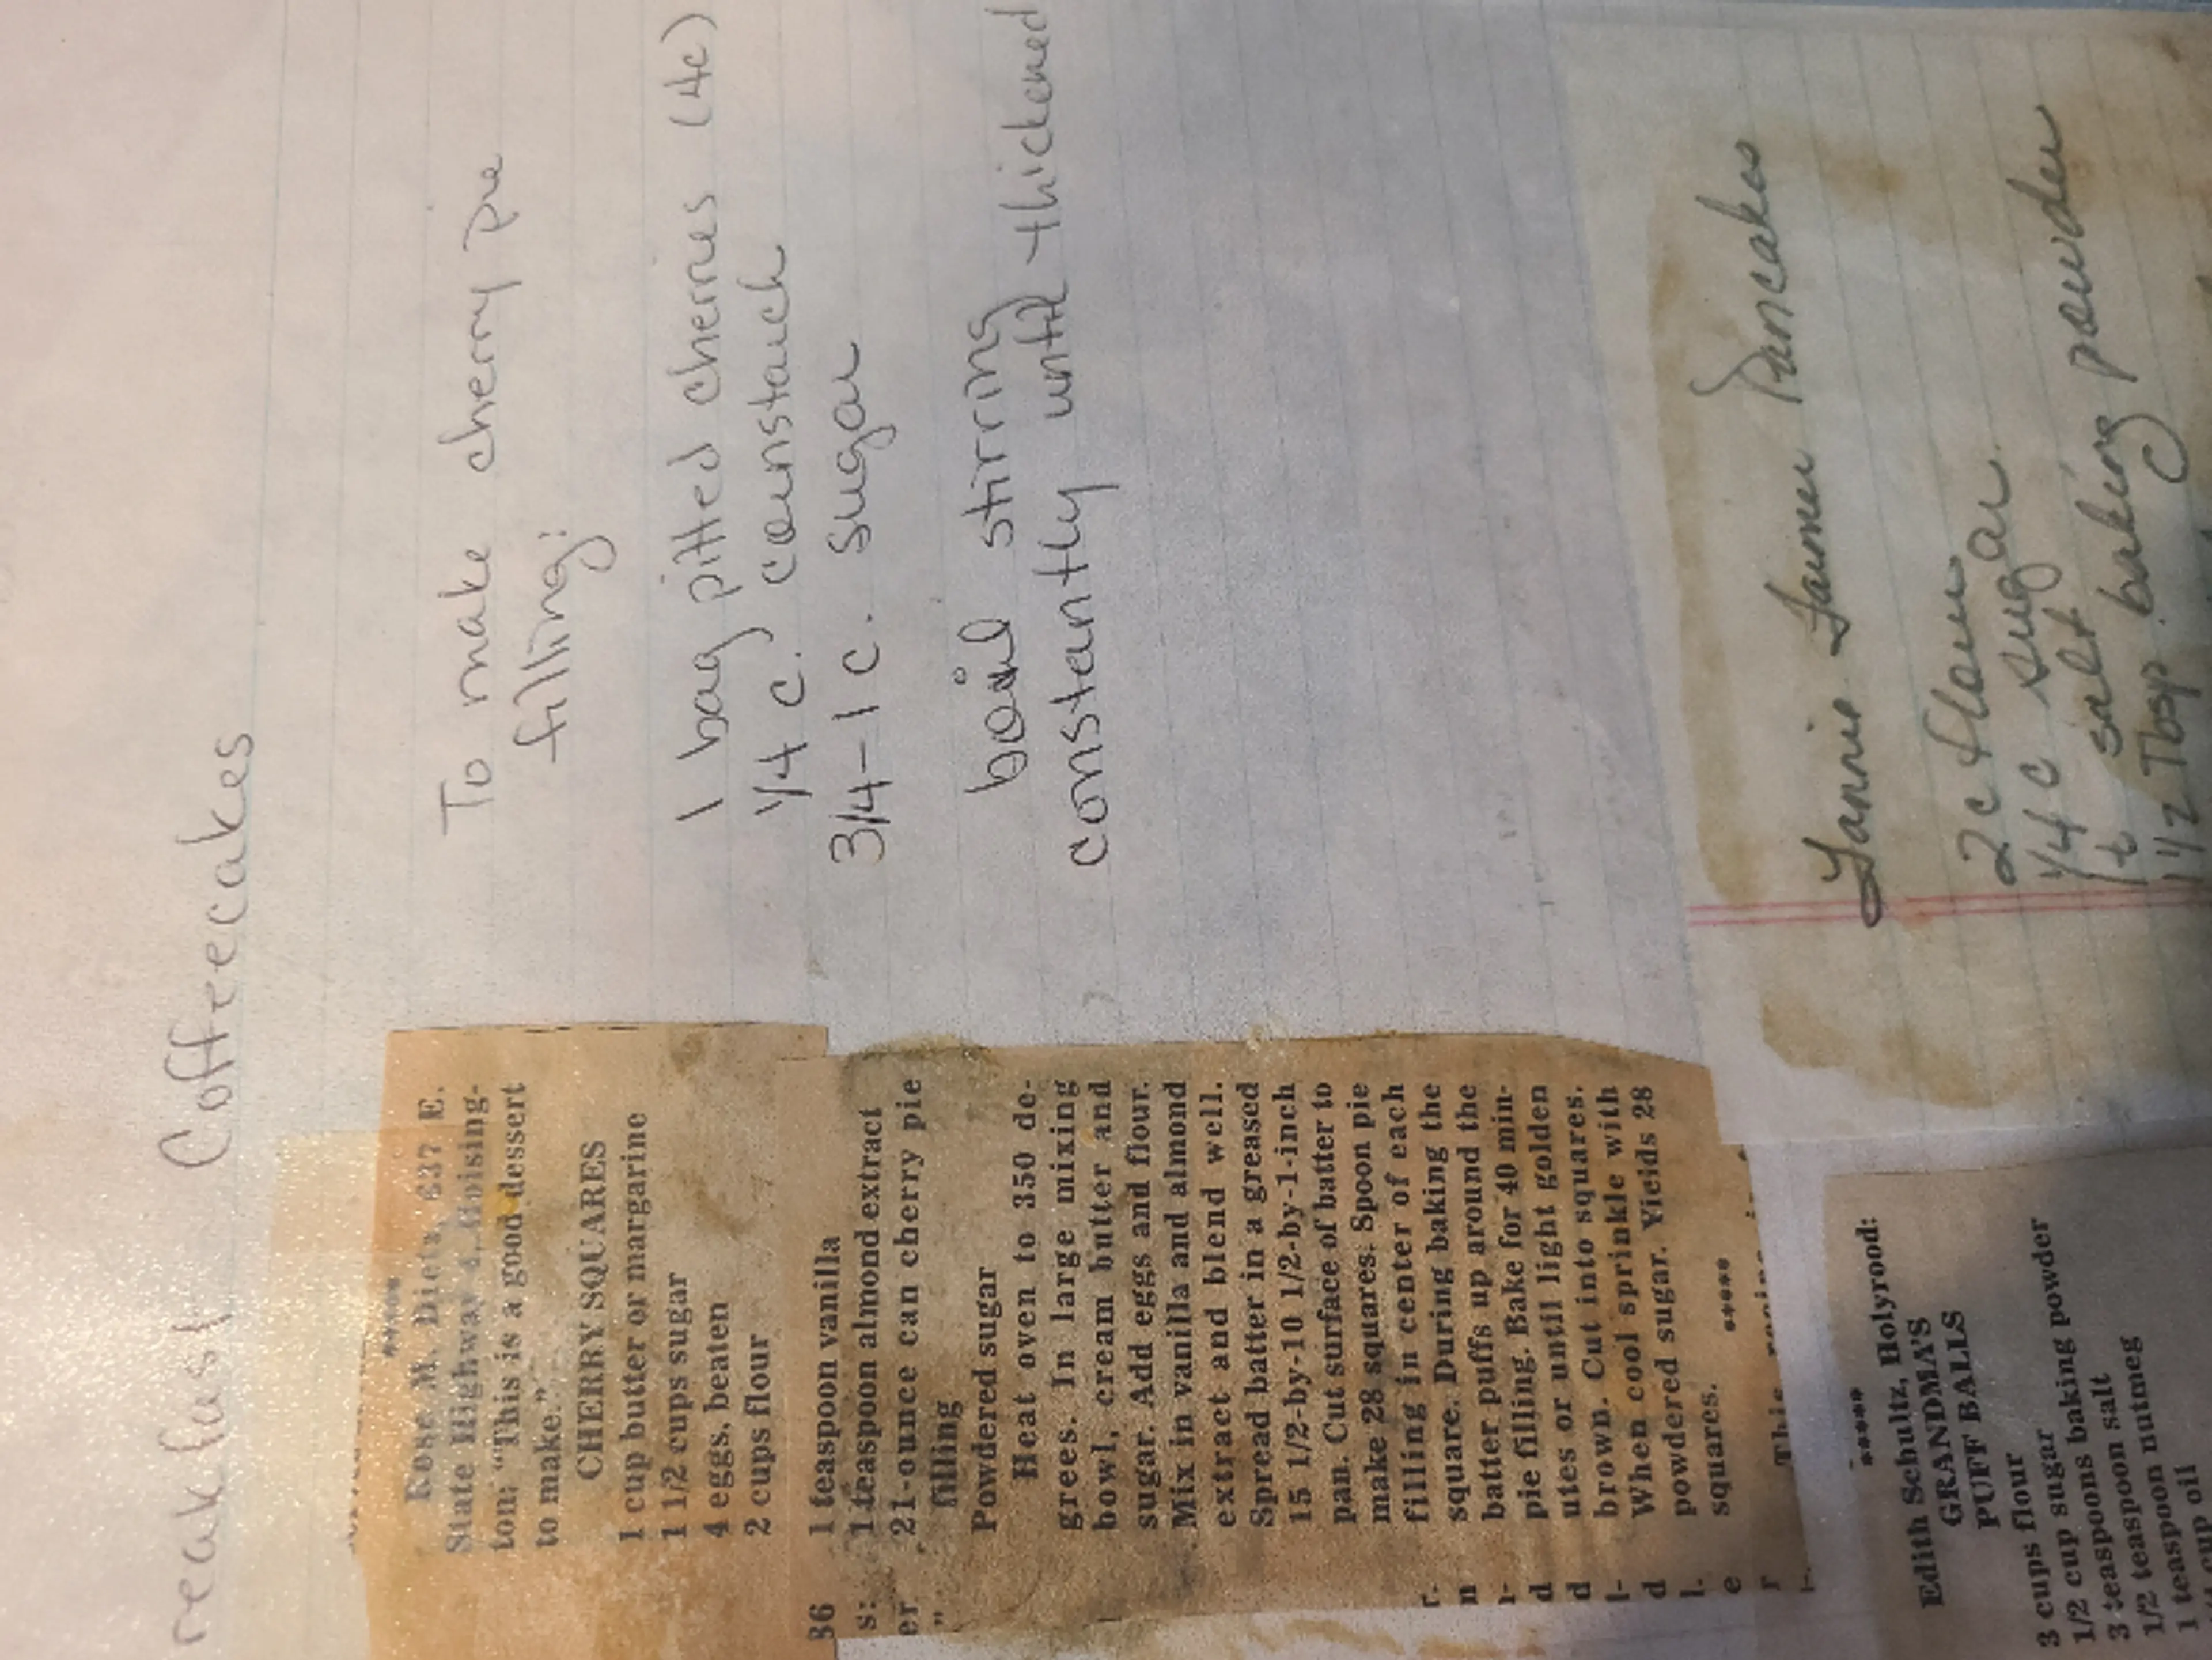 reakfast Coffeecakes
*****
Rose M. Dietz, 637 E.
State Highway 4, Hoising-
ton: "This is a good dessert
to make."
CHERRY SQUARES
1 cup butter or margarine
1 1/2 cups sugar
4 eggs, beaten
2 cups flour
1 teaspoon vanilla
1 teaspoon almond extract
21-ounce can cherry pie
filling
Powdered sugar
Heat oven to 350 de-
grees. In large mixing
bowl, cream butter and
sugar. Add eggs and flour.
Mix in vanilla and almond
extract and blend well.
Spread batter in a greased
15 1/2-by-10 1/2-by-1-inch
pan. Cut surface of batter to
make 28 squares. Spoon pie
filling in center of each
square. During baking the
batter puffs up around the
pie filling. Bake for 40 min-
utes or until light golden
brown. Cut into squares.
When cool sprinkle with
powdered sugar. Yields 28
squares.
*****
This
36
s:
er
"
r.
n
r-
d
d
l-
d
l.
e
r
i-
To make cherry pie
filling:
1 bag pitted cherries (4c)
1/4 c. cornstarch
3/4-1 c. sugar
boil stirring
constantly until thickened
*****
Edith Schultz, Holyrood:
GRANDMA'S
PUFF BALLS
3 cups flour
1/2 cup sugar
3 teaspoons baking powder
1 teaspoon salt
1/2 teaspoon nutmeg
cup oil
Fannie Farmer Pancakes
2 c flour
1/4 c sugar
1 t salt
1 1/2 Tbsp. baking powder